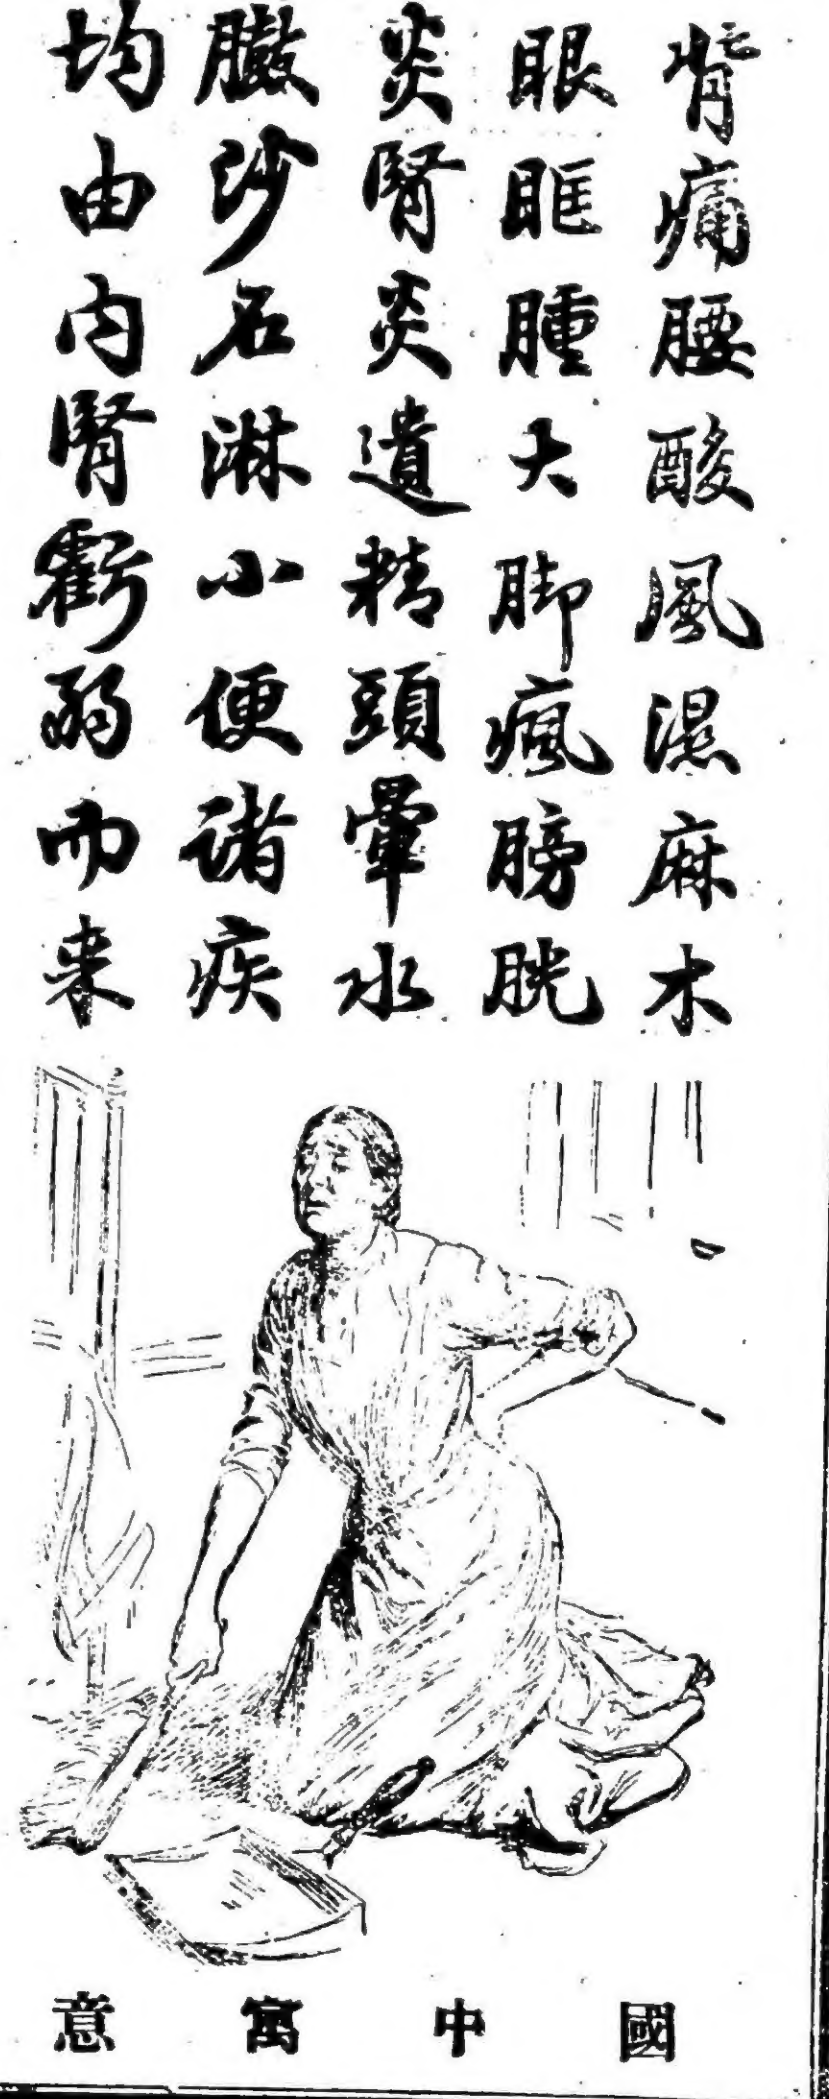 背痛腰酸風濕麻木
眼眶腫大脚瘋膀胱
炎腎炎遺精頭暈水
臌沙名淋小便諸疾
均由內腎虧弱而来
國中寓意